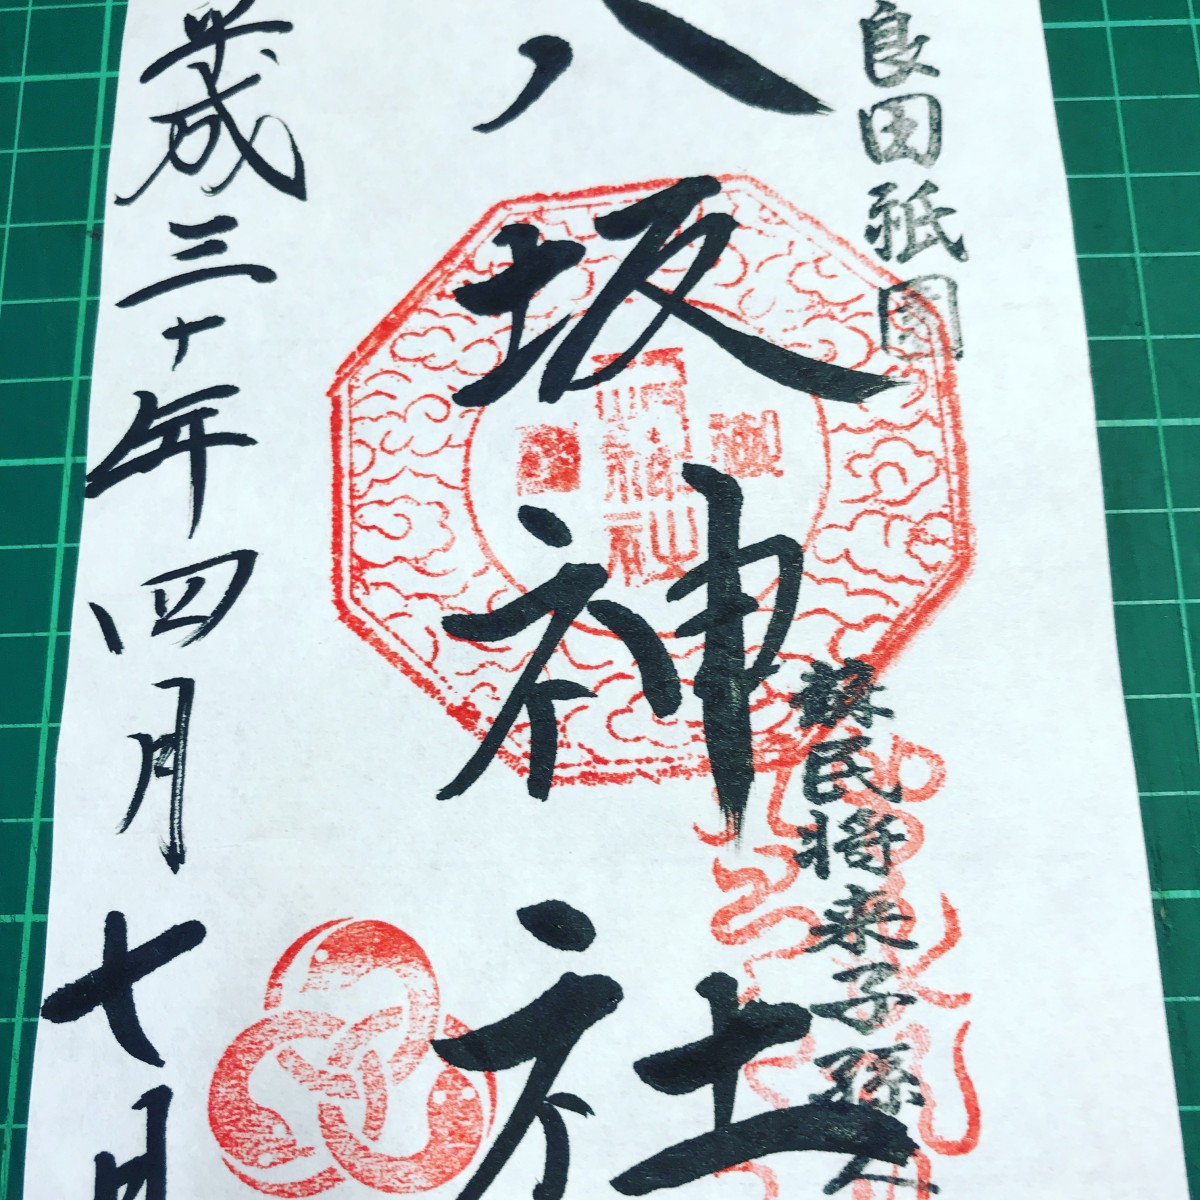 良田祇園
蘇民将来子孫人
八坂神社
平成三十年四月七日